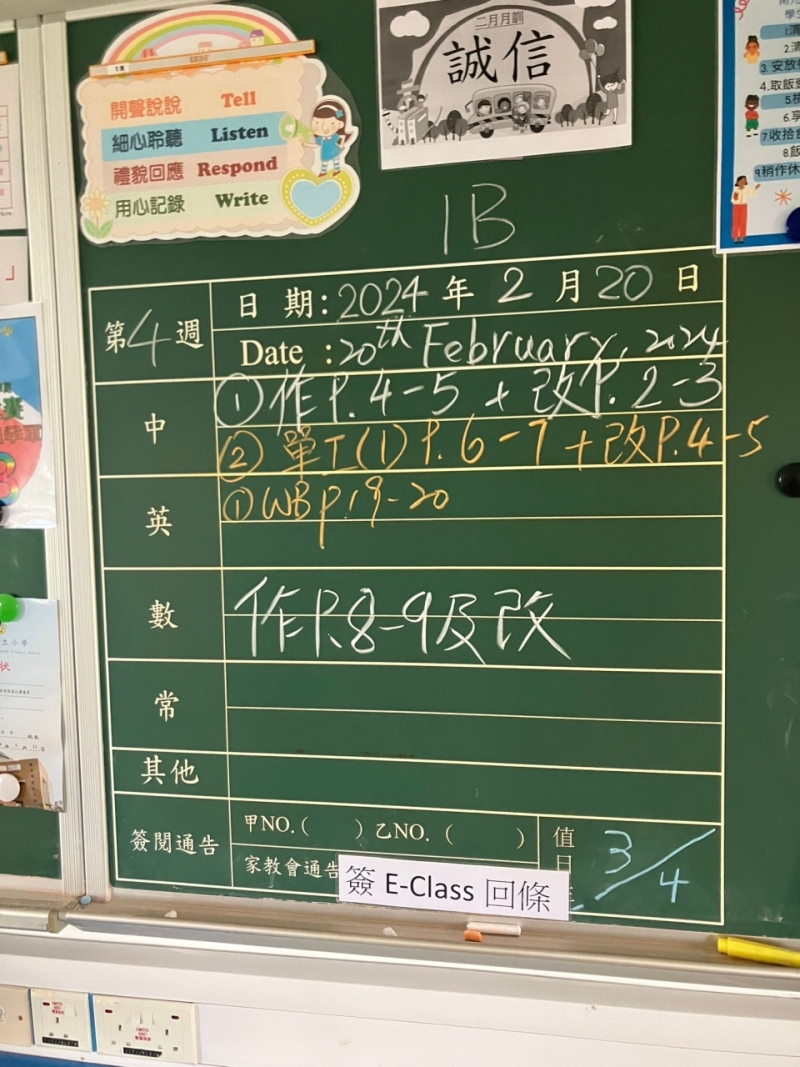 開聲說說 Tell
細心聆聽 Listen
禮貌回應 Respond
用心記錄 Write
二月月訓
誠信
1B
第4週
日期:2024年2月20日
Date :20TH February, 2024
中
①作P.4-5 + 改P.2-3
②單工(1)P.6-7+改P.4-5
英
①WB p.19-20
數
作P.8-9及改
常
其他
簽閱通告
甲NO.( )乙NO.( )
家教會通告
簽 E-Class 回條
值日
3/4
3.安放
4.取飯
7.收拾
8.飯
9.稍作休